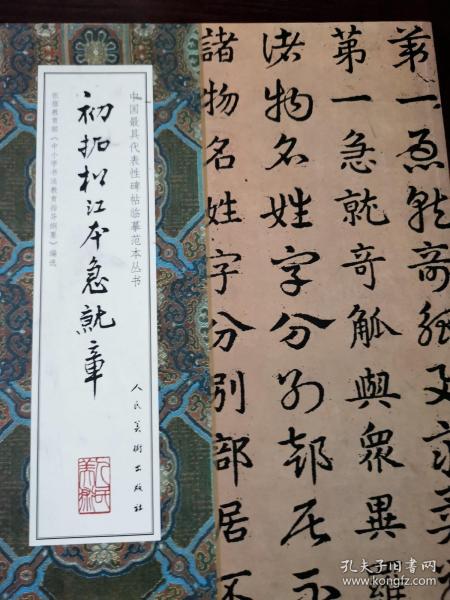 中国最具代表性碑帖临摹范本丛书
初拓松江本急就章
依据教育部《中小学书法教育指导纲要》编选
人民美術出版社
人民美術
第一急就奇觚與眾異
第一急就奇觚與眾異羅
諸物名姓字分别部居不
諸物名姓字分別部居不
孔夫子旧书网
www.kongfz.com